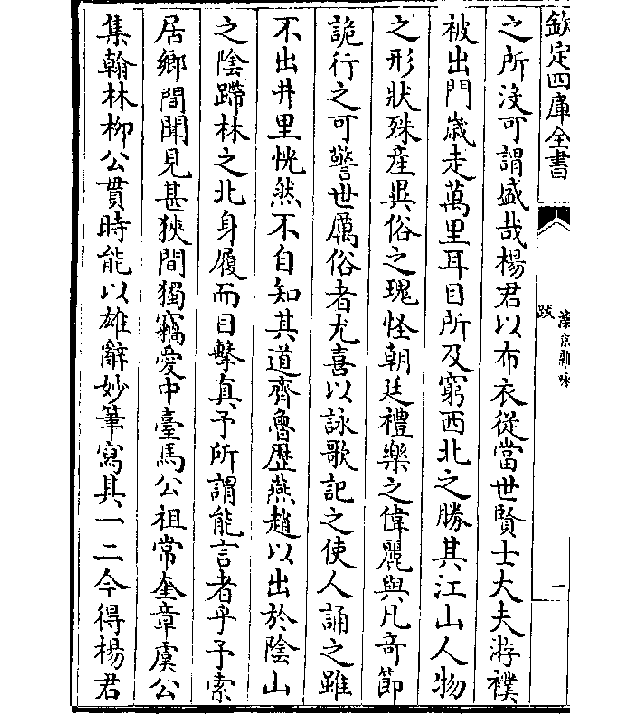 欽定四庫全書
灤京雜咏
跋
一
之所沒可謂盛哉楊君以布衣從當世賢士大夫游襆
被出門歲走萬里耳目所及窮西北之勝其江山人物
之形狀殊產異俗之瑰怪朝廷禮樂之偉麗與凡奇節
詭行之可警世厲俗者尤喜以詠歌記之使人誦之雖
不出井里恍然不自知其道齊魯歷燕趙以出於陰山
之陰蹛林之北身履而目擊真予所謂能言者乎予索
居鄉間聞見甚狹間獨竊愛中臺馬公祖常奎章虞公
集翰林柳公貫時能以雄辭妙筆寫其一二今得楊君